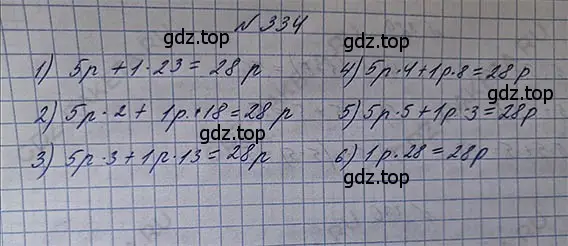 №334
gdz.top
1) 5р + 1 · 23 = 28 р
2) 5р · 2 + 1р · 18 = 28 р
3) 5р · 3 + 1р · 13 = 28р
gdz.top
gdz.top
4) 5р · 4 + 1р · 8 = 28р
5) 5р · 5 + 1р · 3 = 28р
6) 1р · 28 = 28р
gdz.top